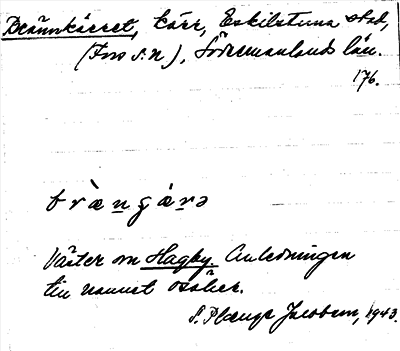 Brännkärret, kärr, Eskilstuna stad,
(Fors s:n), Södermanlands län.
176.
Väster om Hagby. Anledningen
till namnet osäker.
Jacobsen, 1943.